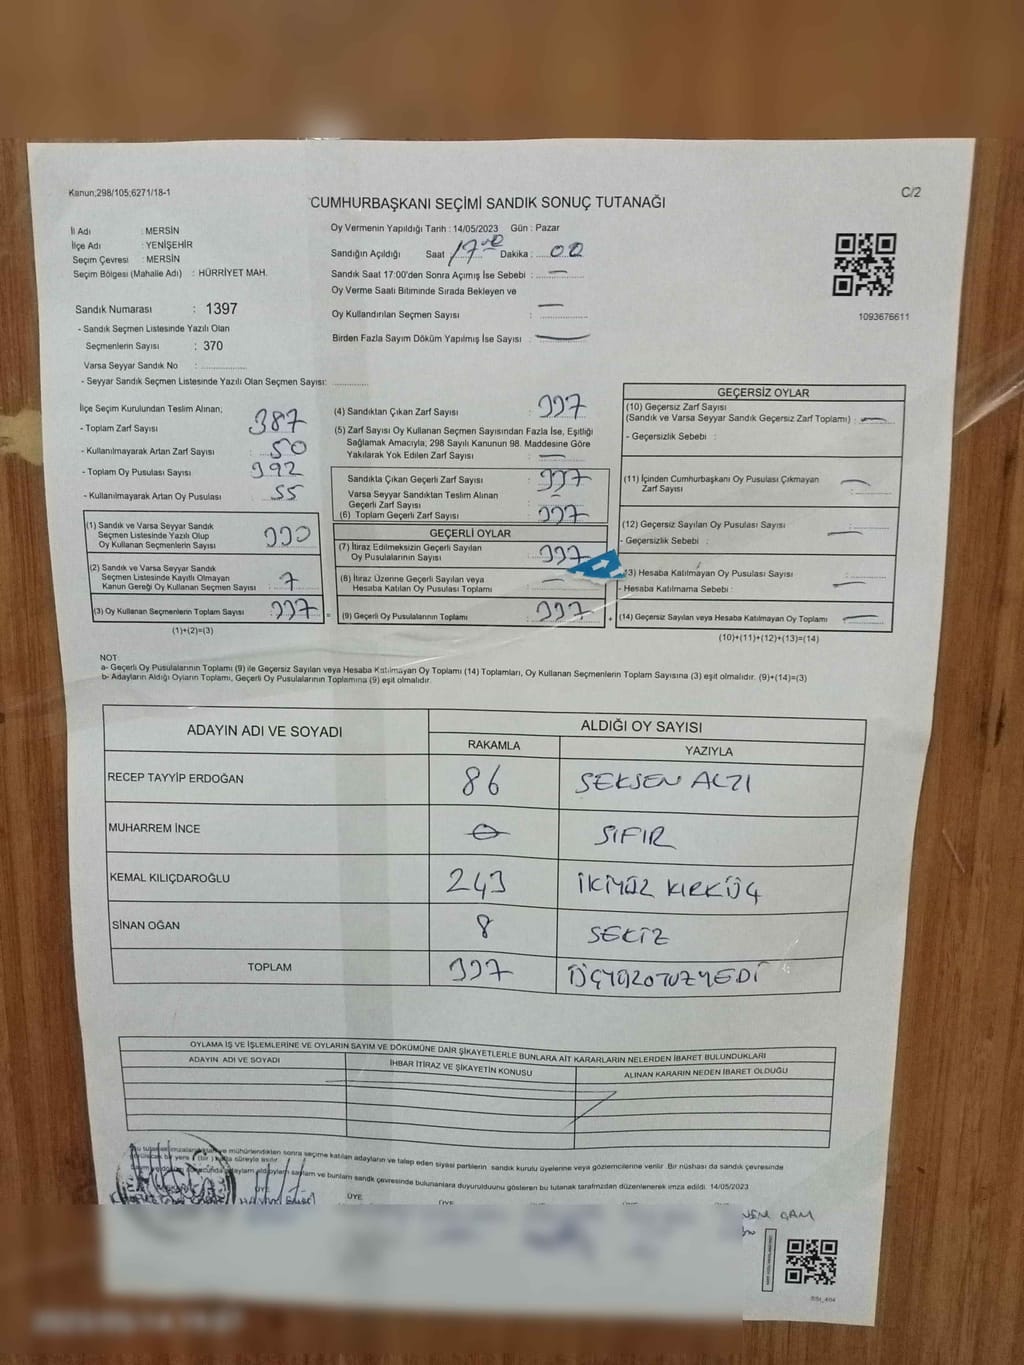 Kanun;298/105;6271/18-1
C/2
CUMHURBAŞKANI SEÇİMİ SANDIK SONUÇ TUTANAĞI
İl Adı : MERSİN
İlçe Adı : YENİŞEHİR
Seçim Çevresi : MERSİN
Seçim Bölgesi (Mahalle Adı) : HÜRRİYET MAH.
Sandık Numarası : 1397
- Sandık Seçmen Listesinde Yazılı Olan
Seçmenlerin Sayısı : 370
Varsa Seyyar Sandık No :
- Seyyar Sandık Seçmen Listesinde Yazılı Olan Seçmen Sayısı:
Oy Vermenin Yapıldığı Tarih : 14/05/2023 Gün : Pazar
Sandığın Açıldığı Saat 17 00 Dakika : 00
Sandık Saat 17:00'den Sonra Açımış İse Sebebi : —
Oy Verme Saati Bitiminde Sırada Bekleyen ve
Oy Kullandırılan Seçmen Sayısı : —
Birden Fazla Sayım Döküm Yapılmış İse Sayısı : —
1093676611
İlçe Seçim Kurulundan Teslim Alınan;
- Toplam Zarf Sayısı 387
- Kullanılmayarak Artan Zarf Sayısı : 50
- Toplam Oy Pusulası Sayısı 392
- Kullanılmayarak Artan Oy Pusulası : 55
(1) Sandık ve Varsa Seyyar Sandık
Seçmen Listesinde Yazılı Olup
Oy Kullanan Seçmenlerin Sayısı : 330
(2) Sandık ve Varsa Seyyar Sandık
Seçmen Listesinde Kayıtlı Olmayan
Kanun Gereği Oy Kullanan Seçmen Sayısı : 7
(3) Oy Kullanan Seçmenlerin Toplam Sayısı : 337
(1)+(2)=(3)
(4) Sandıktan Çıkan Zarf Sayısı : 337
(5) Zarf Sayısı Oy Kullanan Seçmen Sayısından Fazla İse, Eşitliği
Sağlamak Amacıyla; 298 Sayılı Kanunun 98. Maddesine Göre
Yakılarak Yok Edilen Zarf Sayısı : —
Sandıkta Çıkan Geçerli Zarf Sayısı : 337
Varsa Seyyar Sandıktan Teslim Alınan
Geçerli Zarf Sayısı : —
(6) Toplam Geçerli Zarf Sayısı : 337
GEÇERLİ OYLAR
(7) İtiraz Edilmeksizin Geçerli Sayılan
Oy Pusulalarının Sayısı : 337
(8) İtiraz Üzerine Geçerli Sayılan veya
Hesaba Katılan Oy Pusulası Toplamı : —
(9) Geçerli Oy Pusulalarının Toplamı : 337
GEÇERSİZ OYLAR
(10) Geçersiz Zarf Sayısı
(Sandık ve Varsa Seyyar Sandık Geçersiz Zarf Toplamı) : —
- Geçersizlik Sebebi :
(11) İçinden Cumhurbaşkanı Oy Pusulası Çıkmayan
Zarf Sayısı : —
(12) Geçersiz Sayılan Oy Pusulası Sayısı : —
- Geçersizlik Sebebi :
13) Hesaba Katılmayan Oy Pusulası Sayısı : —
- Hesaba Katılmama Sebebi :
(14) Geçersiz Sayılan veya Hesaba Katılmayan Oy Toplamı : —
(10)+(11)+(12)+(13)=(14)
NOT:
a- Geçerli Oy Pusulalarının Toplamı (9) ile Geçersiz Sayılan veya Hesaba Katılmayan Oy Toplamı (14) Toplamları, Oy Kullanan Seçmenlerin Toplam Sayısına (3) eşit olmalıdır. (9)+(14)=(3)
b- Adayların Aldığı Oyların Toplamı, Geçerli Oy Pusulalarının Toplamına (9) eşit olmalıdır.
ADAYIN ADI VE SOYADI ALDIĞI OY SAYISI
RAKAMLA YAZIYLA
RECEP TAYYİP ERDOĞAN 86 SEKSEN ALTI
MUHARREM İNCE 0 SIFIR
KEMAL KILIÇDAROĞLU 243 İKİYÜZ KIRKÜÇ
SİNAN OĞAN 8 SEKİZ
TOPLAM 337 ÜÇYÜZOTUZYEDİ
OYLAMA İŞ VE İŞLEMLERİNE VE OYLARIN SAYIM VE DÖKÜMÜNE DAİR ŞİKAYETLERLE BUNLARA AİT KARARLARIN NELERDEN İBARET BULUNDUKLARI
ADAYIN ADI VE SOYADI İHBAR İTİRAZ VE ŞİKAYETİN KONUSU ALINAN KARARIN NEDEN İBARET OLDUĞU
mühürlendikten sonra seçime katılan adayların ve talep eden siyasi partilerin sandık kurulu üyelerine veya gözlemcilerine verilir. Bir nüshası da sandık çevresinde
bunların sandık çevresinde bulunanlara duyurulduğunu gösteren bu tutanak tarafımızdan düzenlenerek imza edildi. 14/05/2023
ÜYE ÜYE